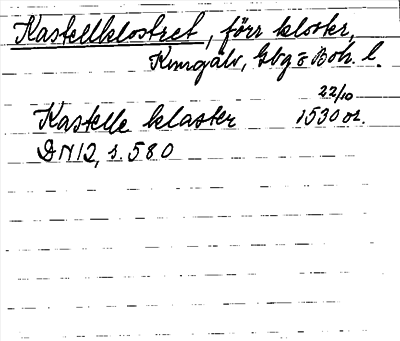 Kastellklostret, förr kloster,
Kungälv, Gbg o Boh. l.
22/10
Kastelle klaster 1530 or.
DN 12, s. 580